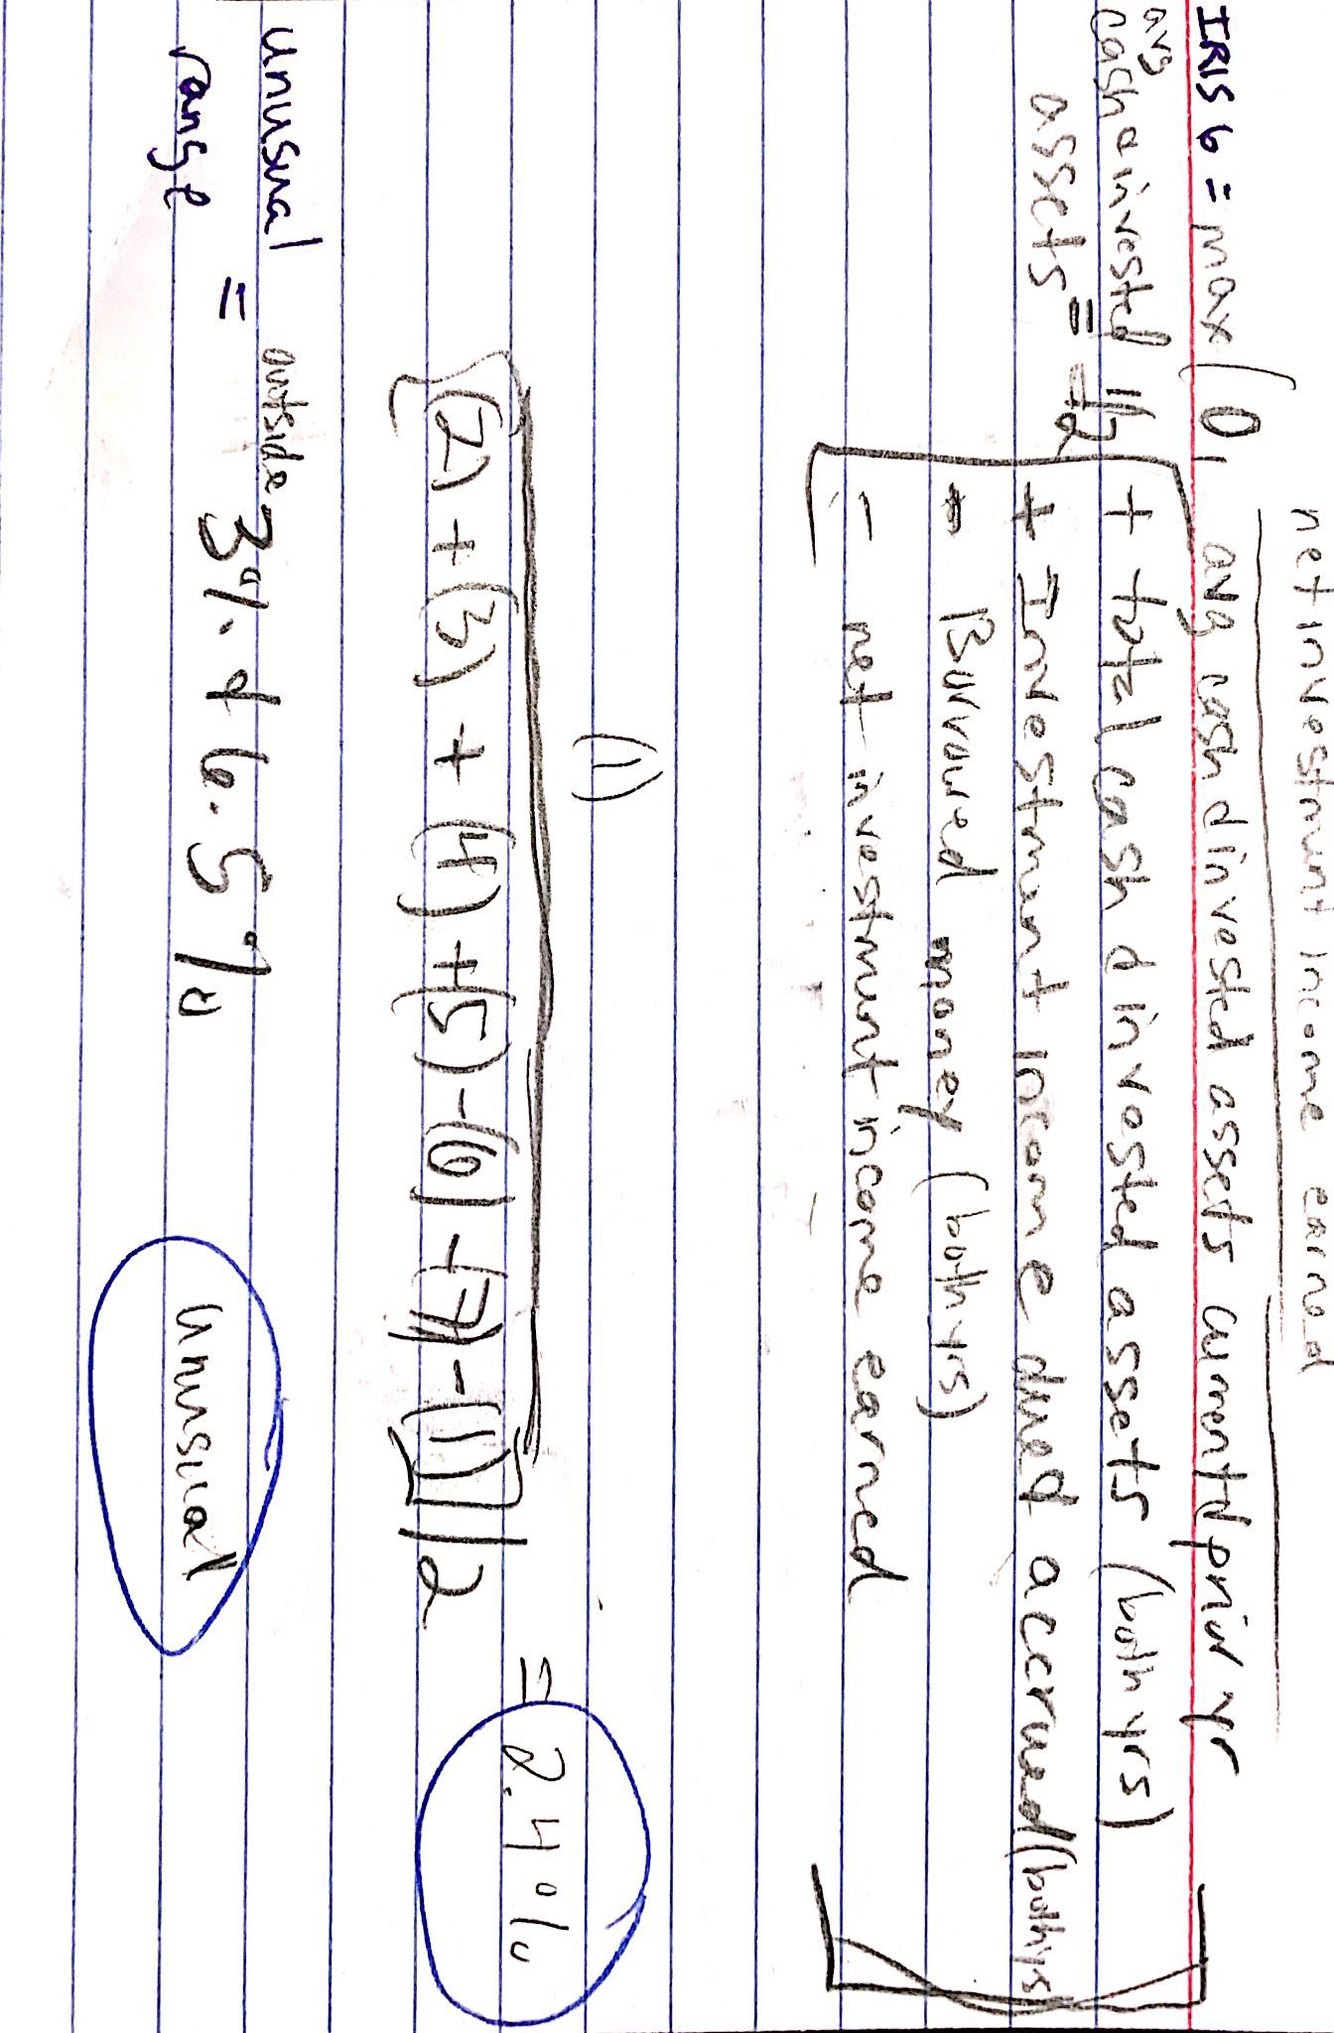 net investment income earned
IRIS 6 = max (0, avg cash & invested assets current & prior yr
avg
cash & invested
assets = 1/2
+ total cash & invested assets (both yrs)
+ Investment income due & accrued (both yrs)
- Borrowed money (both yrs)
- net investment income earned
(1)
[(2) + (3) + (4) + (5) - (6) + (7) - (1)]/2
= 2.4%
unusual
range
= outside 3% & 6.5%
unusual